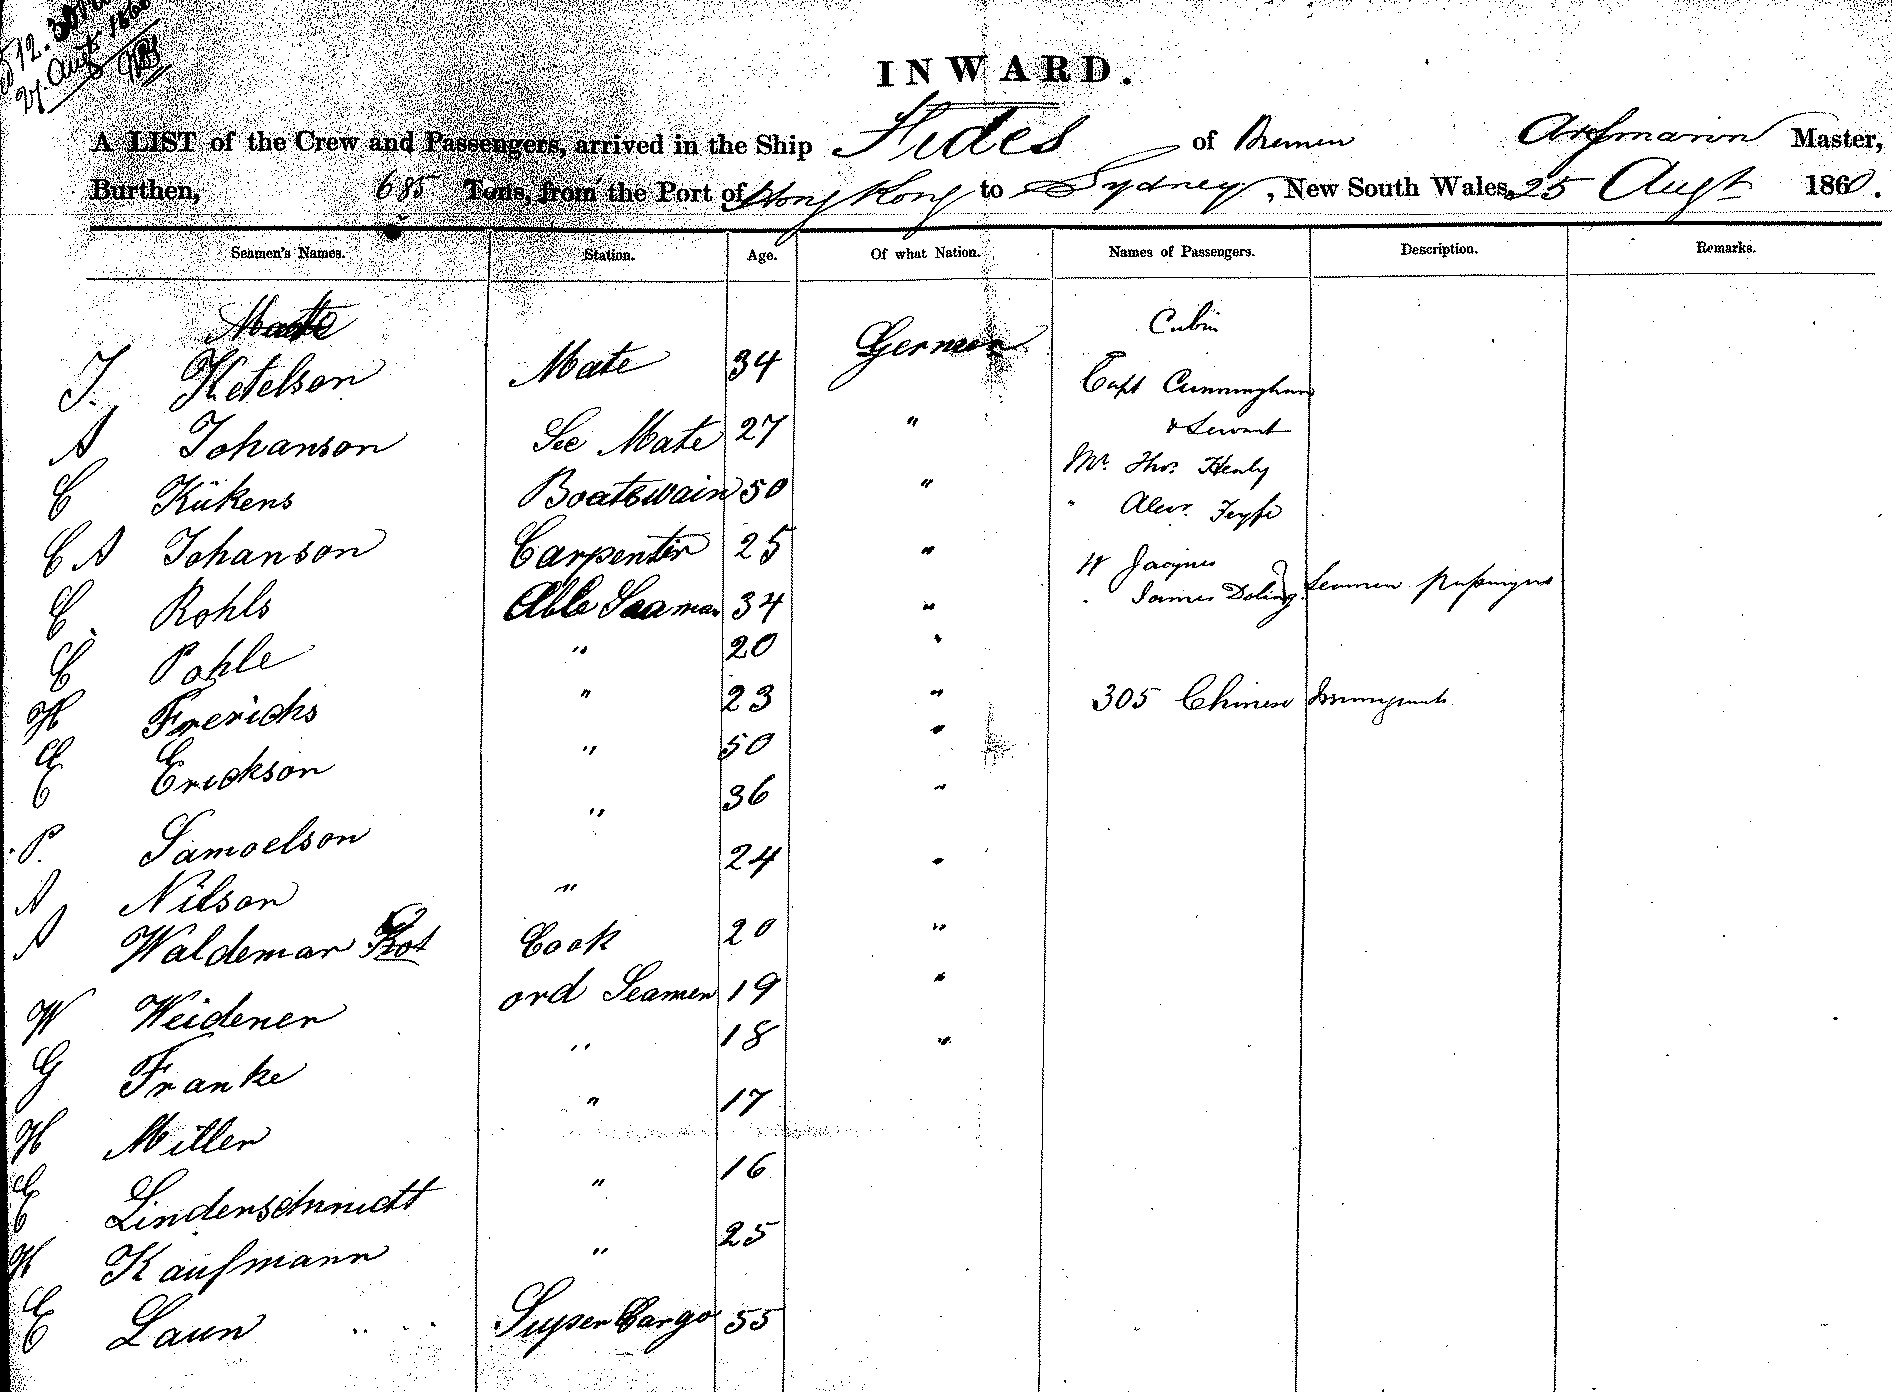 12.30
27. Augt 1860
INWARD.
A LIST of the Crew and Passengers, arrived in the Ship Fides of Bremen Master,
Burthen, 685 Tons, from the Port of Hong Kong to Sydney, New South Wales, 25 Augt 1860.
Seamen's Names. Station. Age. Of what Nation. Names of Passengers. Description. Remarks.
Mate
Cubin
J. Ketelson Mate 34 German Capt Cunningham
& Servant
A Johanson Sec Mate 27 " Mr. Thos. Henly
C Kükens Boatswain 50 " " Alexr. Fyfe
C A Johanson Carpenter 25 " W Jacques
C. Rohls Able Seaman 34 " " James Doling Seamen Passengers
C Pohle " 20 "
H Frerichs " 23 " 305 Chinese Immigrants
C Erickson " 50 "
P. Samoelson " 36 "
A Nilson " 24 "
A Waldemar Cook 20 "
W Weidener ord Seamen 19 "
G Franke " 18 "
H Miller " 17
C Linderschmidt " 16
H Kaufmann " 25
C Laun Super Cargo 55